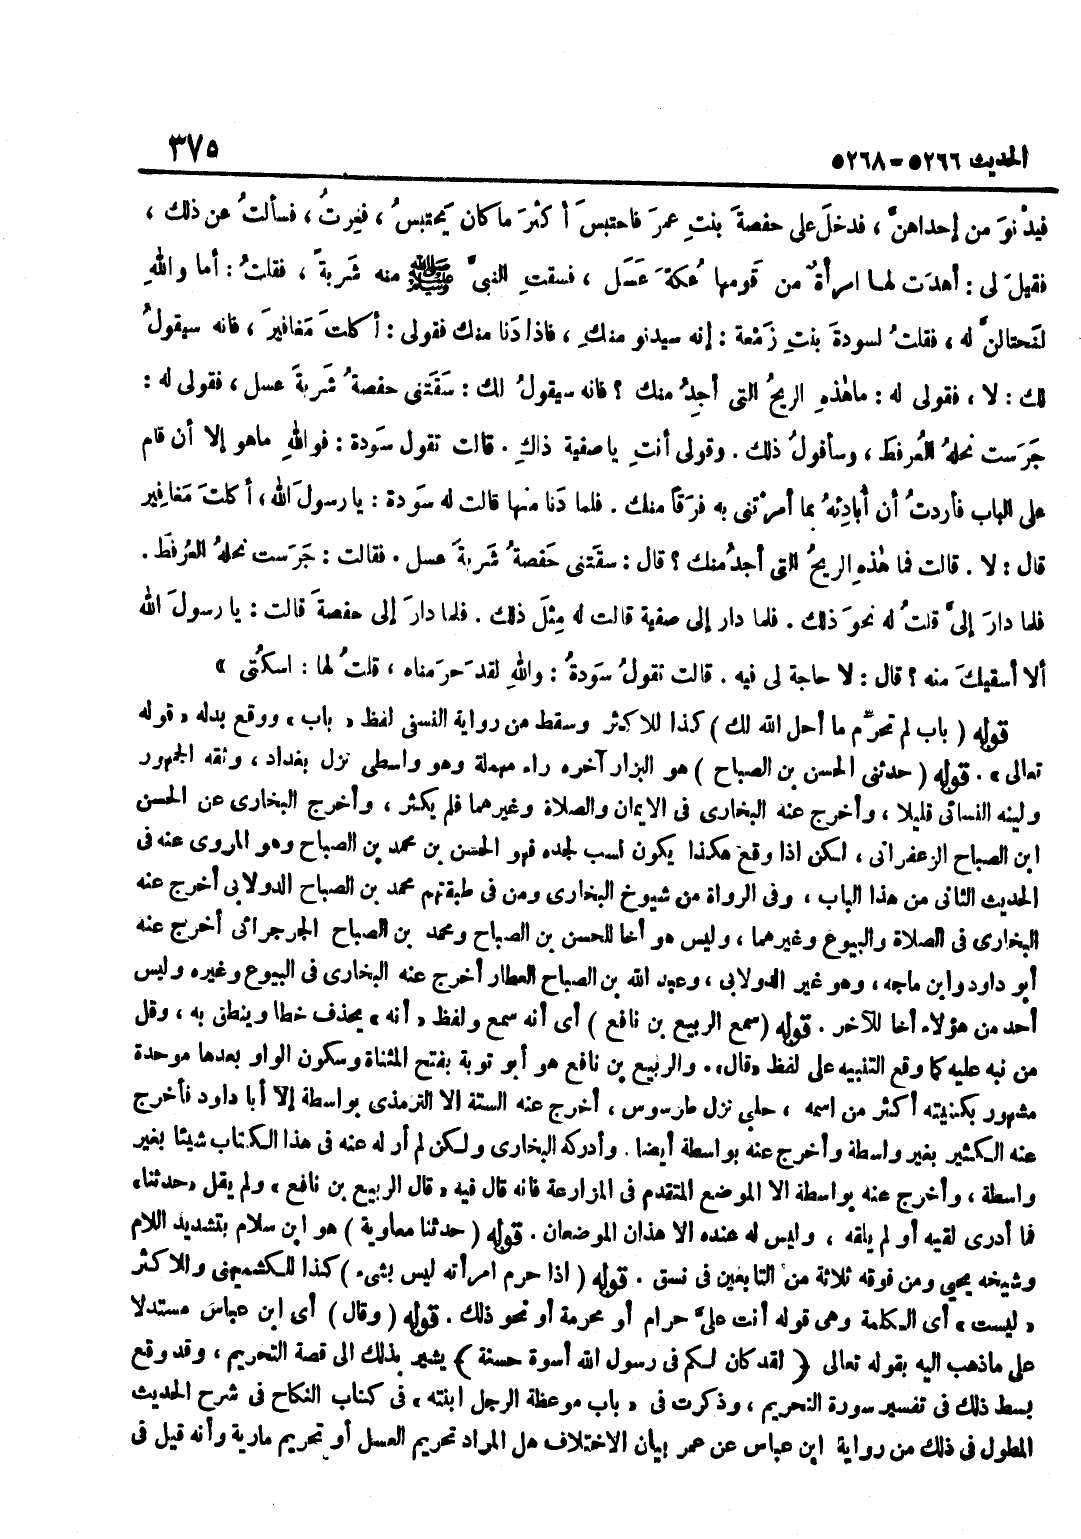 الحديث ٥٢٦٦ - ٥٢٦٨
٣٧٥
فيدْنوَ من إحداهنَّ ، فدخلَ على حفصةَ بنتِ عمرَ فاحتبسَ أكثرَ ما كان يَحتبسُ ، فغِرتُ ، فسألتُ عن ذلك ،
فقيلَ لى : أهدَت لهـا امرأةٌ من قَومها عُكةَ عَسَل ، فسقتِ النبىَّ ﷺ منه شَربةً ، فقلتُ : أما واللهِ
لَنَحتالنَّ له ، فقلتُ لسودةَ بنتِ زَمْعة : إنه سيدنو منكِ ، فاذا دَنا منك فقولى : أكلتَ مَغافيرَ ، فانه سيقولُ
لك : لا ، فقولى له : ما هٰذهِ الريحُ التى أجدُ منك ؟ فانه سيقولُ لك : سَقَتنى حفصةُ شَربةَ عسل ، فقولى له :
جَرَست نحلهُ العُرفطَ ، وسأقولُ ذلك . وقولى أنتِ يا صفية ذاكِ . قالت تقول سَودة : فواللهِ ماهو إلا أن قام
على الباب فأردتُ أن أُبادِئهُ بما أمرْتنى به فرَقًا منك . فلما دَنا منها قالت له سَودة : يا رسولَ الله ، أكلتَ مَغافير
قال : لا . قالت فما هٰذهِ الريحُ التى أجدُ منك ؟ قال : سقَتنى حَفصةُ شَربةَ عسل . فقالت : جَرَست نحلهُ العُرفطَ .
فلما دارَ إلىَّ قلتُ له نحوَ ذلك . فلما دار إلى صفية قالت له مِثلَ ذلك . فلما دارَ إلى حفصةَ قالت : يا رسولَ الله
ألا أسقيكَ منه ؟ قال : لا حاجة لى فيه . قالت تقولُ سَودةُ : واللهِ لقد حَرَمناه ، قلتُ لها : اسكُتى »
قوله ( باب لم تحرِّم ما أحل الله لك ) كذا للاكثر وسقط من رواية النسفى لفظ « باب » ووقع بدله « قوله
تعالى » . قوله ( حدثنى الحسن بن الصباح ) هو البزار آخره راء مهملة وهو واسطى نزل بغداد ، وثقه الجمهور
ولينه النسائى قليلا ، وأخرج عنه البخارى فى الايمان والصلاة وغيرهما فلم يكثر ، وأخرج البخارى عن الحسن
ابن الصباح الزعفرانى ، لكن اذا وقع هكذا يكون نسب لجده فهو الحسن بن محمد بن الصباح وهو المروى عنه فى
الحديث الثانى من هذا الباب ، وفى الرواة من شيوخ البخارى ومن فى طبقتهم محمد بن الصباح الدولابى أخرج عنه
البخارى فى الصلاة والبيوع وغيرهما ، وليس هو أخا للحسن بن الصباح ومحمد بن الصباح الجرجرائى أخرج عنه
أبو داود وابن ماجه ، وهو غير الدولابى ، وعبد الله بن الصباح العطار أخرج عنه البخارى فى البيوع وغيره وليس
أحد من هؤلاء أخا للآخر . قوله ( سمع الربيع بن نافع ) أى أنه سمع ولفظ « أنه » يحذف خطا وينطق به ، وقل
من نبه عليه كما وقع التنبيه على لفظ «قال» . والربيع بن نافع هو أبو توبة بفتح المثناة وسكون الواو بعدها موحدة
مشهور بكنيته أكثر من اسمه ، حلبى نزل طرسوس ، أخرج عنه الستة الا الترمذى بواسطة إلا أبا داود فأخرج
عنه الكثير بغير واسطة وأخرج عنه بواسطة أيضا . وأدركه البخارى ولكن لم أر له عنه فى هذا الكتاب شيئا بغير
واسطة ، وأخرج عنه بواسطة الا الموضع المتقدم فى المزارعة فانه قال فيه « قال الربيع بن نافع » ولم يقل «حدثنا»
فما أدرى لقيه أو لم يلقه ، وليس له عنده الا هذان الموضعان . قوله ( حدثنا معاوية ) هو ابن سلام بتشديد اللام
وشيخه يحيى ومن فوقه ثلاثة من التابعين فى نسق . قوله ( اذا حرم امرأته ليس بشىء ) كذا للكشميهنى وللاكثر
« ليست » أى الكلمة وهى قوله أنت علىَّ حرام أو محرمة أو نحو ذلك . قوله ( وقال ) أى ابن عباس مستدلا
على ماذهب اليه بقوله تعالى ﴿ لقد كان لكم فى رسول الله أسوة حسنة ﴾ يشير بذلك الى قصة التحريم ، وقد وقع
بسط ذلك فى تفسير سورة التحريم ، وذكرت فى « باب موعظة الرجل ابنته » فى كتاب النكاح فى شرح الحديث
المطول فى ذلك من رواية ابن عباس عن عمر بيان الاختلاف هل المراد تحريم العسل أو تحريم مارية وأنه قيل فى